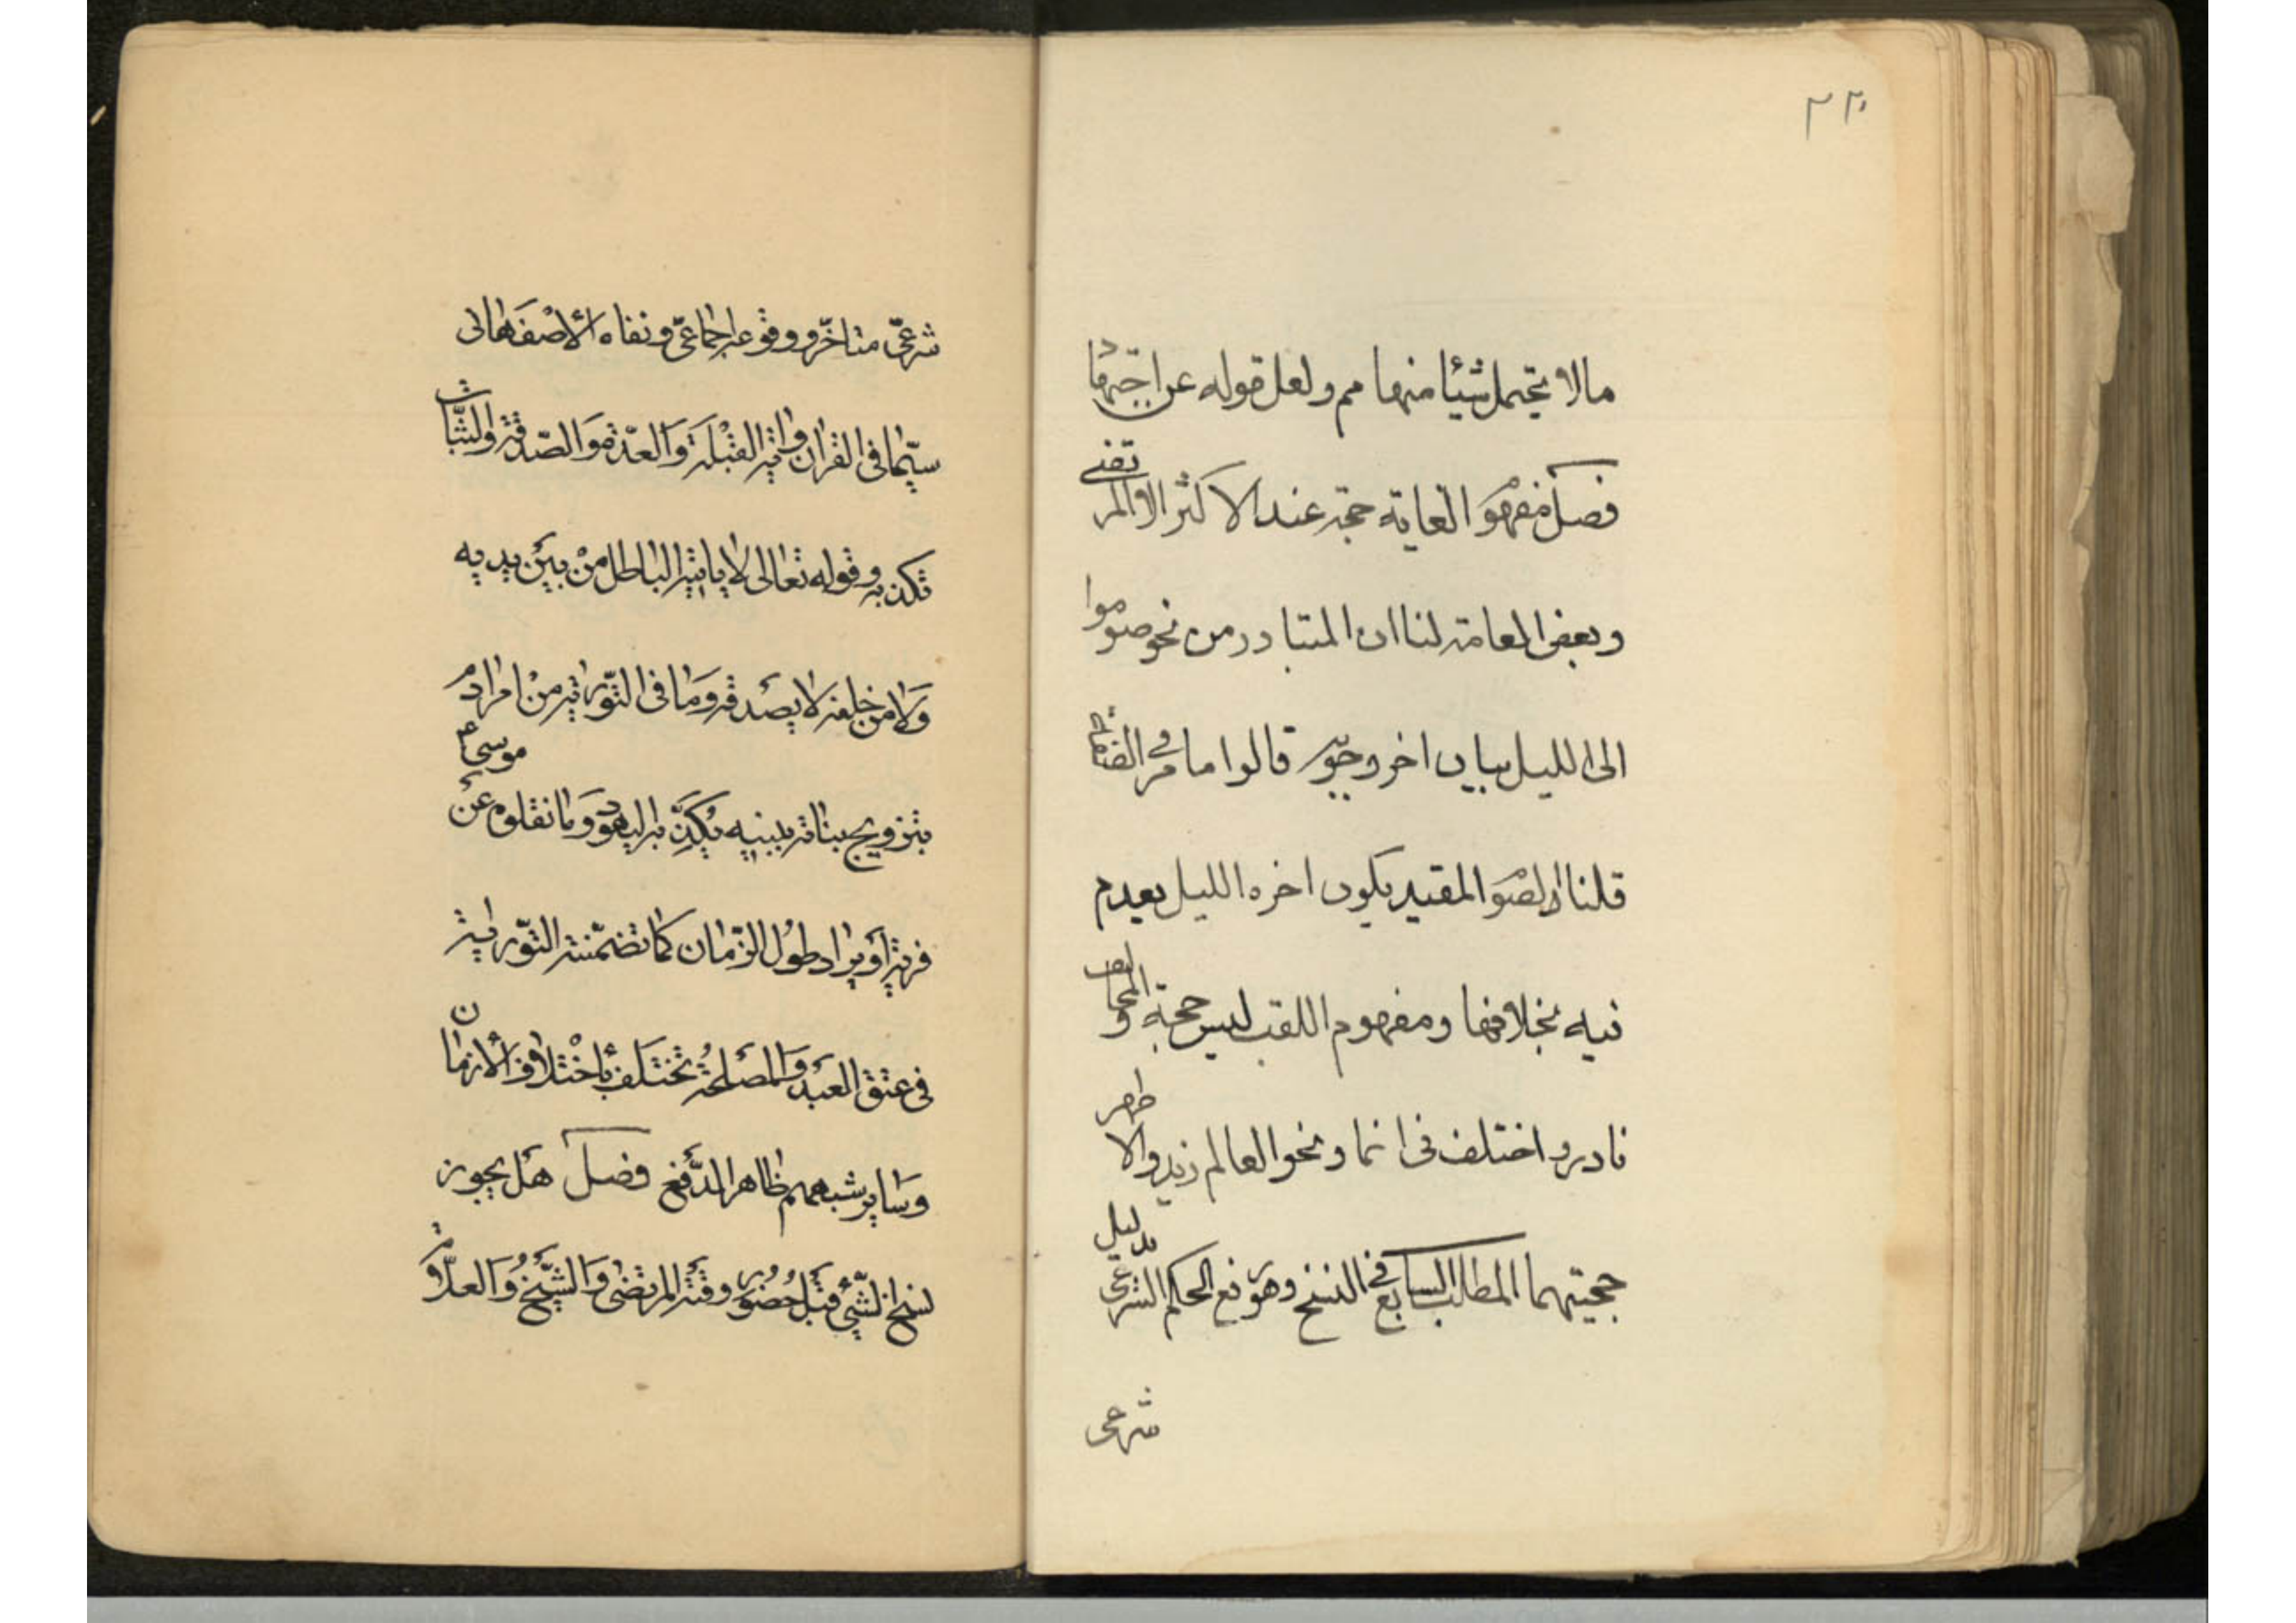 ٢٢٠
مالا يحتمل شيئا منهما مم ولعل قوله عن
فصل مفهوم الغاية حجة عند الاكثر الا المرتضى
وبعض العامة لنا ان المتبادر من نحو صوموا
الى الليل بيان اخر وجوبه قالوا ما مر في
قلنا الصوم المقيد بكون اخره الليل يعدم
فيه بخلافها ومفهوم اللقب ليس حجة والمخالف
نادر واختلف فى انما ونحو العالم زيد والاظهر
حجيتهما المطلب السابع في النسخ وهو رفع الحكم الشرعى بدليل
شرعى
شرعىّ متاخّر ووقوعه اجماعىّ ونفاه الأصفهانى
سيّما فى القرآن واية القبلة والعدّة والصّدقة والثّبات
تكذبه وقوله تعالى لا ياتيه الباطل من بين يديه
ولا من خلفه لا يصدقه وما فى التّوراية من امر ادم
بتزويج بناته ببنيه يكذّبه اليهود وما نقلوه عن موسى ع
فرية أو يراد طول الزّمان كما تضمّنته التّوراية
فى عتق العبد والمصلحة تختلف بأختلاف الأزمان
وساير شبههم ظاهر الدّفع فصل هل يجوز
نسخ الشّيئ قبل حضور وقته المرتضى والشّيخ والعلّامة